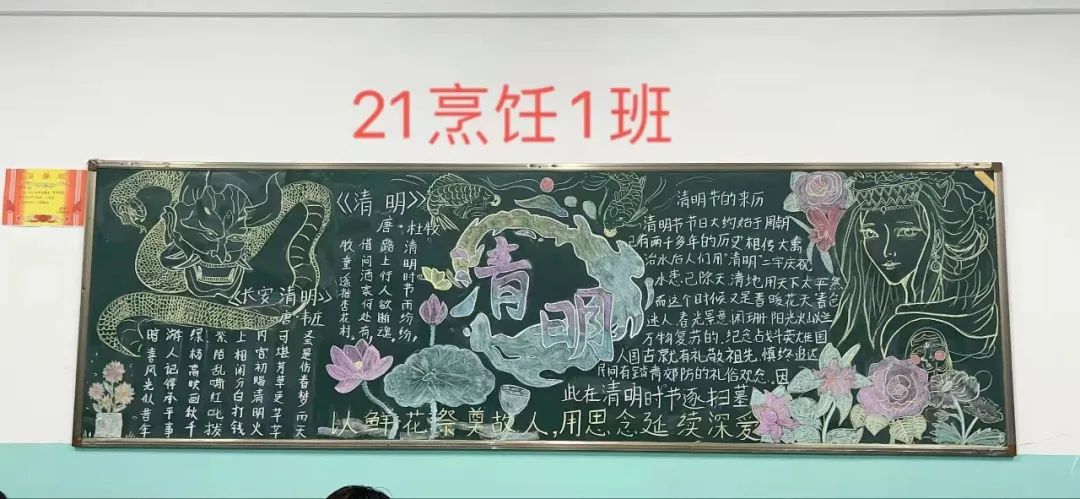 21烹饪1班
《长安清明》
唐 韦庄
是伤春梦雨天
可堪芳草更芊芊
内宫初赐清明火
上相闲分白打钱
紫陌乱嘶红叱拨
绿杨高映画秋千
游人记得承平事
暗喜风光似昔年
《清明》
唐·杜牧
清明时节雨纷纷,
路上行人欲断魂。
借问酒家何处有,
牧童遥指杏花村。
清明
清明节的来历
清明节节日大约始于周朝
已有两千多年的历史相传大禹
治水后人们用"清明"二字庆祝
水患己除天清地用天下太平然
而这个时候又是春暖花天春色
迷人春光景意闲珊阳光火
万物复苏的.纪念古战斗英雄国
人国古常就有礼敬祖先.慎终追远
民间有踏青郊防的礼俗观念.因
此在清明时节逐扫墓
以鲜花祭奠故人,用思念延续深爱